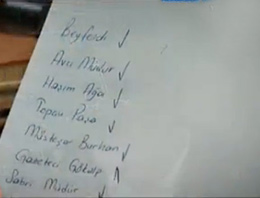 Beyfendi ✓
Avcı Müdür ✓
Hazım Ağa ✓
Topan Paşa ✓
Müsteşar Burhan ✓
Gazeteci Gökalp
Sabri Müdür ✓